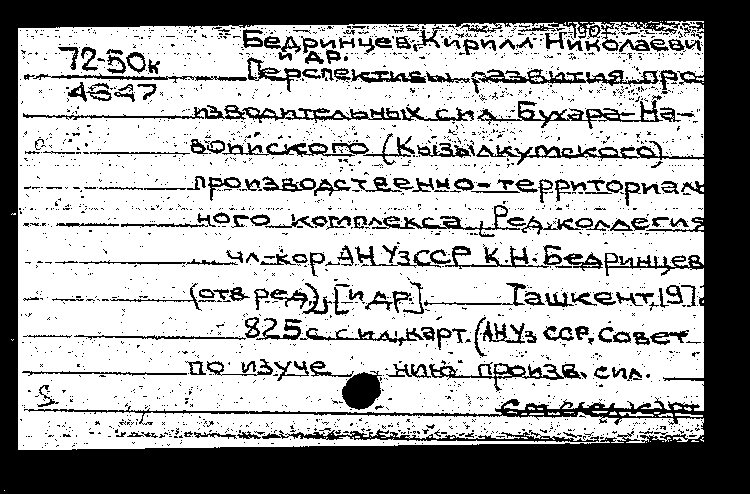 72-50к
4847
Бедринцев, Кирилл Николаеви
и др.
Перспективы развития про-
изводительных сил Бухара-На-
воийского (Кызылкумского)
производственно-территориаль
ного комплекса. [Ред. коллегия
... чл.-кор. АН УзССР К.Н. Бедринцев
(отв ред.), [и др.]. Ташкент, 197
825 с. с ил., карт. (АН Уз ССР. Совет
по изуче нию произв. сил.
См след карт